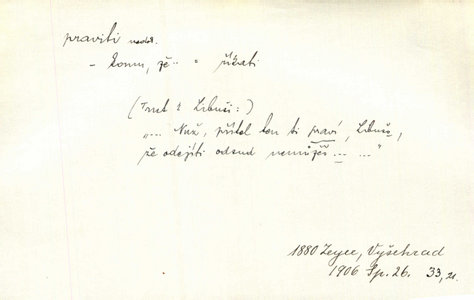 praviti nedok.
- komu, že.. = říkati
(Trut k Libuši:)
„... Nuž, přítel ten ti praví, Libuše,
že odejíti odsud nemůžeš ... ..."
1880 Zeyer, Vyšehrad
1906 Sp. 26. 33, 21.